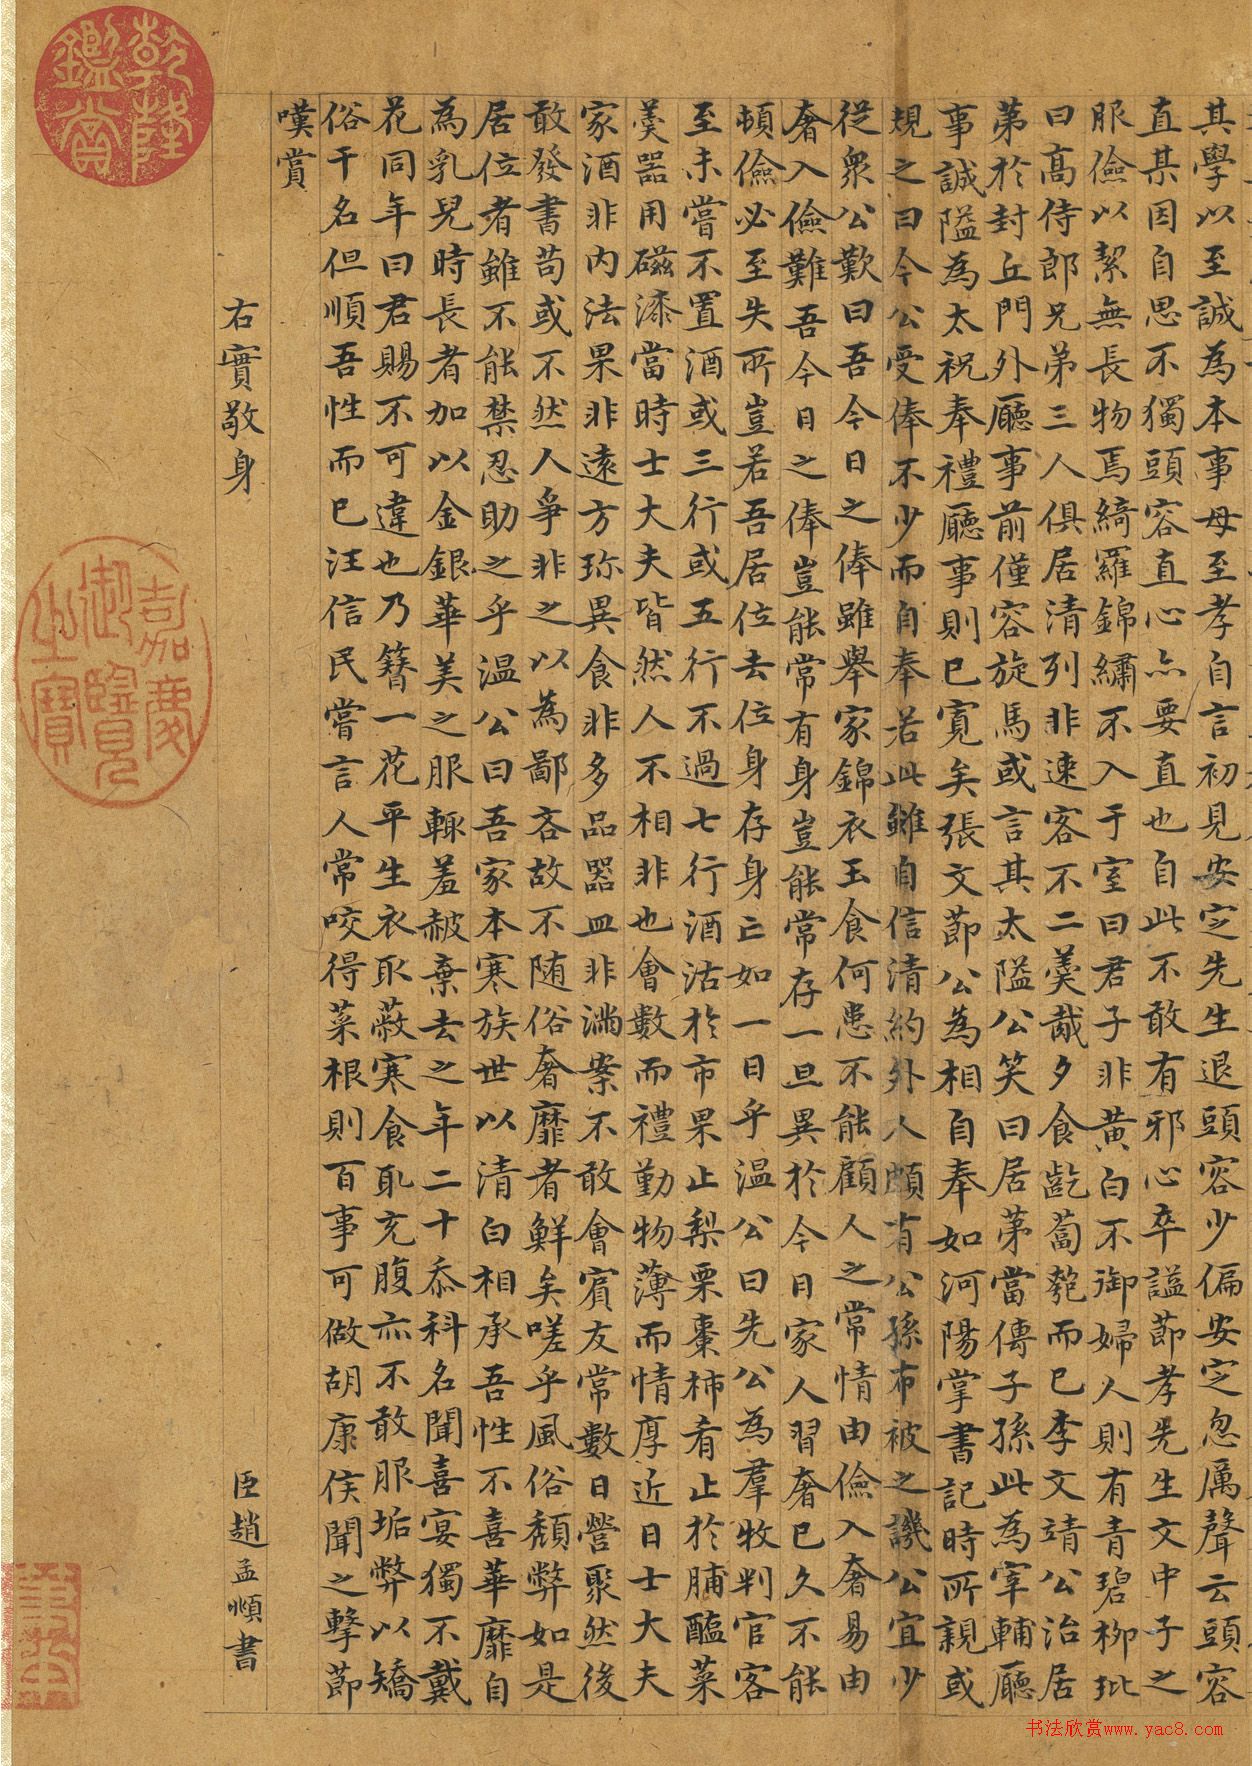 其學以至誠為本事母至孝自言初見安定先生退頭容少偏安定忽厲聲云頭容
直某因自思不獨頭容直心亦要直也自此不敢有邪心卒諡節孝先生文中子之
服儉以絜無長物焉綺羅錦繡不入于室曰君子非黃白不御婦人則有青碧柳玭
曰高侍郎兄弟三人俱居清列非速客不二羹胾夕食齕蔔匏而已李文靖公治居
第於封丘門外廳事前僅容旋馬或言其太隘公笑曰居第當傳子孫此為宰輔廳
事誠隘為太祝奉禮廳事則已寬矣張文節公為相自奉如河陽掌書記時所親或
規之曰今公受俸不少而自奉若此雖自信清約外人頗有公孫布被之譏公宜少
從眾公歎曰吾今日之俸雖舉家錦衣玉食何患不能顧人之常情由儉入奢易由
奢入儉難吾今日之俸豈能常有身豈能常存一旦異於今日家人習奢已久不能
頓儉必至失所豈若吾居位去位身存身亡如一日乎溫公曰先公為羣牧判官客
至未嘗不置酒或三行或五行不過七行酒沽於市果止梨栗棗柿肴止於脯醢菜
羹器用磁漆當時士大夫皆然人不相非也會數而禮勤物薄而情厚近日士大夫
家酒非內法果非遠方珎異食非多品器皿非滿案不敢會賓友常數日營聚然後
敢發書苟或不然人爭非之以為鄙吝故不隨俗奢靡者鮮矣嗟乎風俗頹弊如是
居位者雖不能禁忍助之乎溫公曰吾家本寒族世以清白相承吾性不喜華靡自
為乳兒時長者加以金銀華美之服輒羞赧棄去之年二十忝科名聞喜宴獨不戴
花同年曰君賜不可違也乃簪一花平生衣取蔽寒食取充腹亦不敢服垢弊以矯
俗干名但順吾性而已汪信民嘗言人常咬得菜根則百事可做胡康侯聞之擊節
嘆賞
右實敬身
臣趙孟頫書
乾隆鑑賞
嘉慶御覽之寶
书法欣赏www.yac8.com